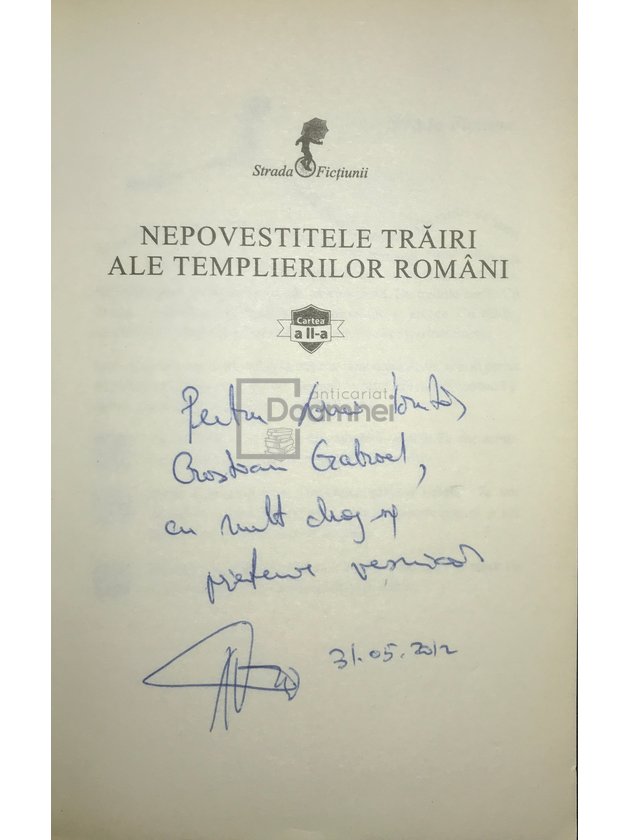 Strada Ficțiunii
NEPOVESTITELE TRĂIRI
ALE TEMPLIERILOR ROMÂNI
Cartea
a II-a
anticariat
Doamnei
Pentru
Cristian Gabriel,
cu mult drag și
prietenie
31.05.2012